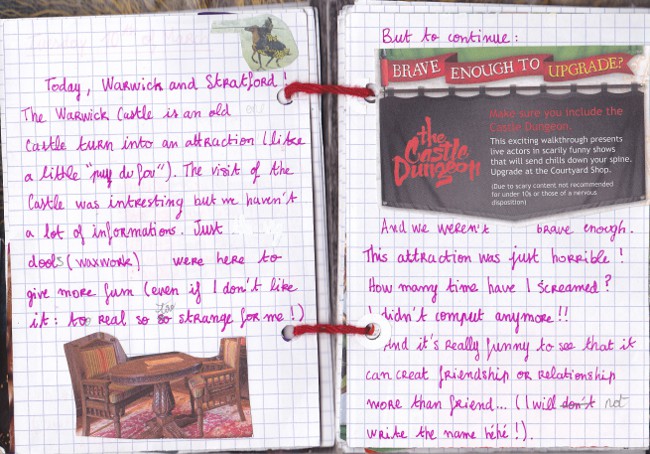 Today, Warwick and Stratford!
The Warwick Castle is an old
castle turn into an attraction (like
a little "puy du fou"). The visit of the
Castle was intresting but we haven't
a lot of informations. Just
dools (waxwork) were here to
give more fum (even if I don't like
it: too real so too strange for me!)
But to continue:
BRAVE ENOUGH TO UPGRADE?
the Castle Dungeon
Make sure you include the
Castle Dungeon.
This exciting walkthrough presents
live actors in scarily funny shows
that will send chills down your spine.
Upgrade at the Courtyard Shop.
(Due to scary content not recommended
for under 10s or those of a nervous
disposition)
And we weren't brave enough.
This attraction was just horrible!
How many time have I screamed?
I didn't comput anymore!!
And it's really funny to see that it
can creat friendship or relationship
more than friend... (I will don't not
write the name héhé!).